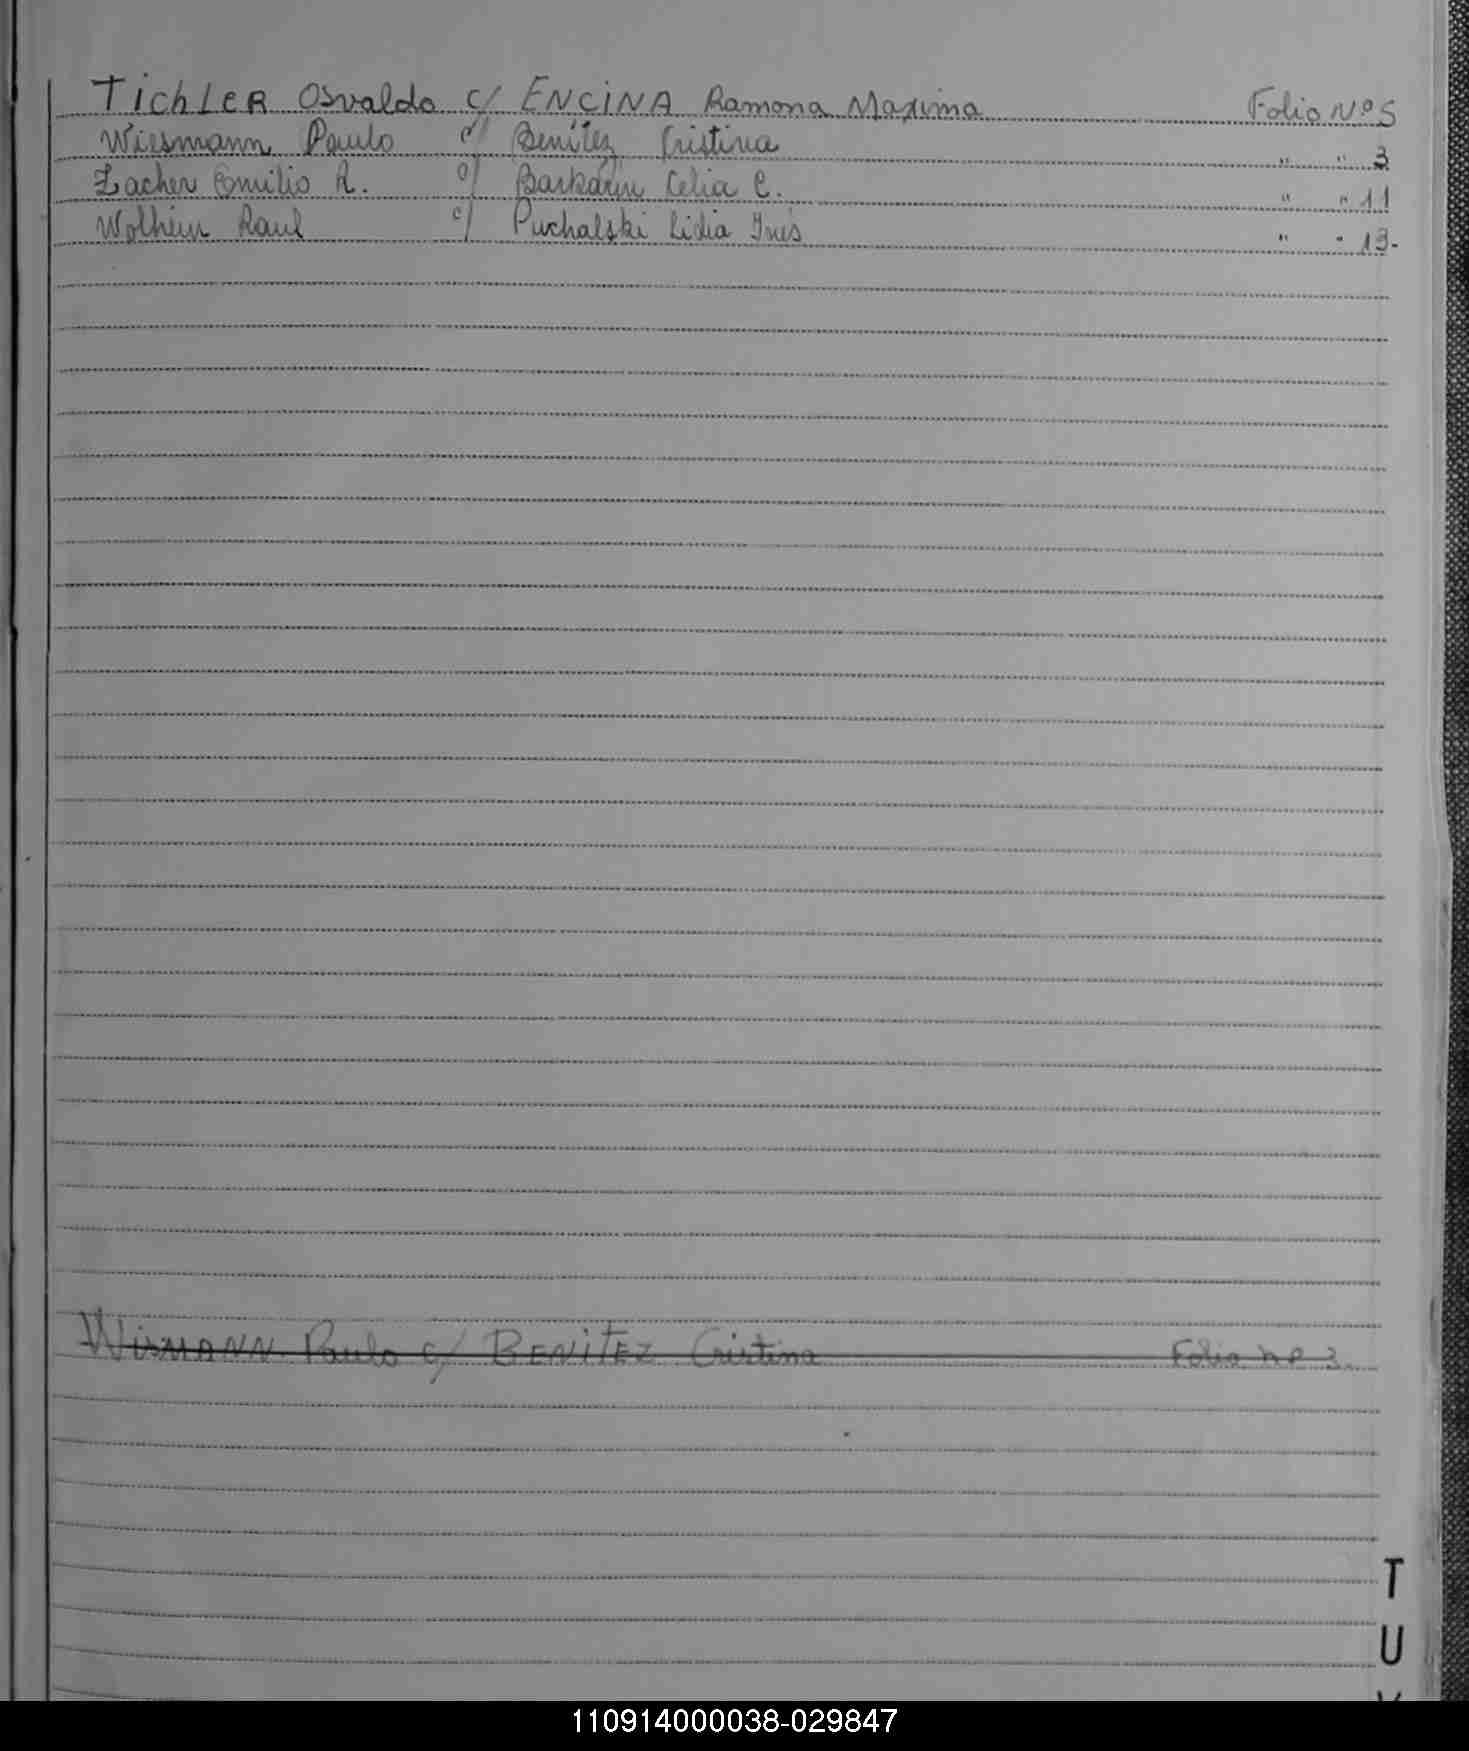 Tichler Osvaldo c/ ENCINA Ramona Maxima Folio Nº 5
Wiesmann Paulo c/ Benítez Cristina " " 3
Zacher Emilio R. c/ Celia C. " " 11
Wolhein Raul c/ Puchalski Lidia Inés " " 13.
WISMANN Paulo c/ BENITEZ Cristina Folio nº 3.
T
U
110914000038-029847